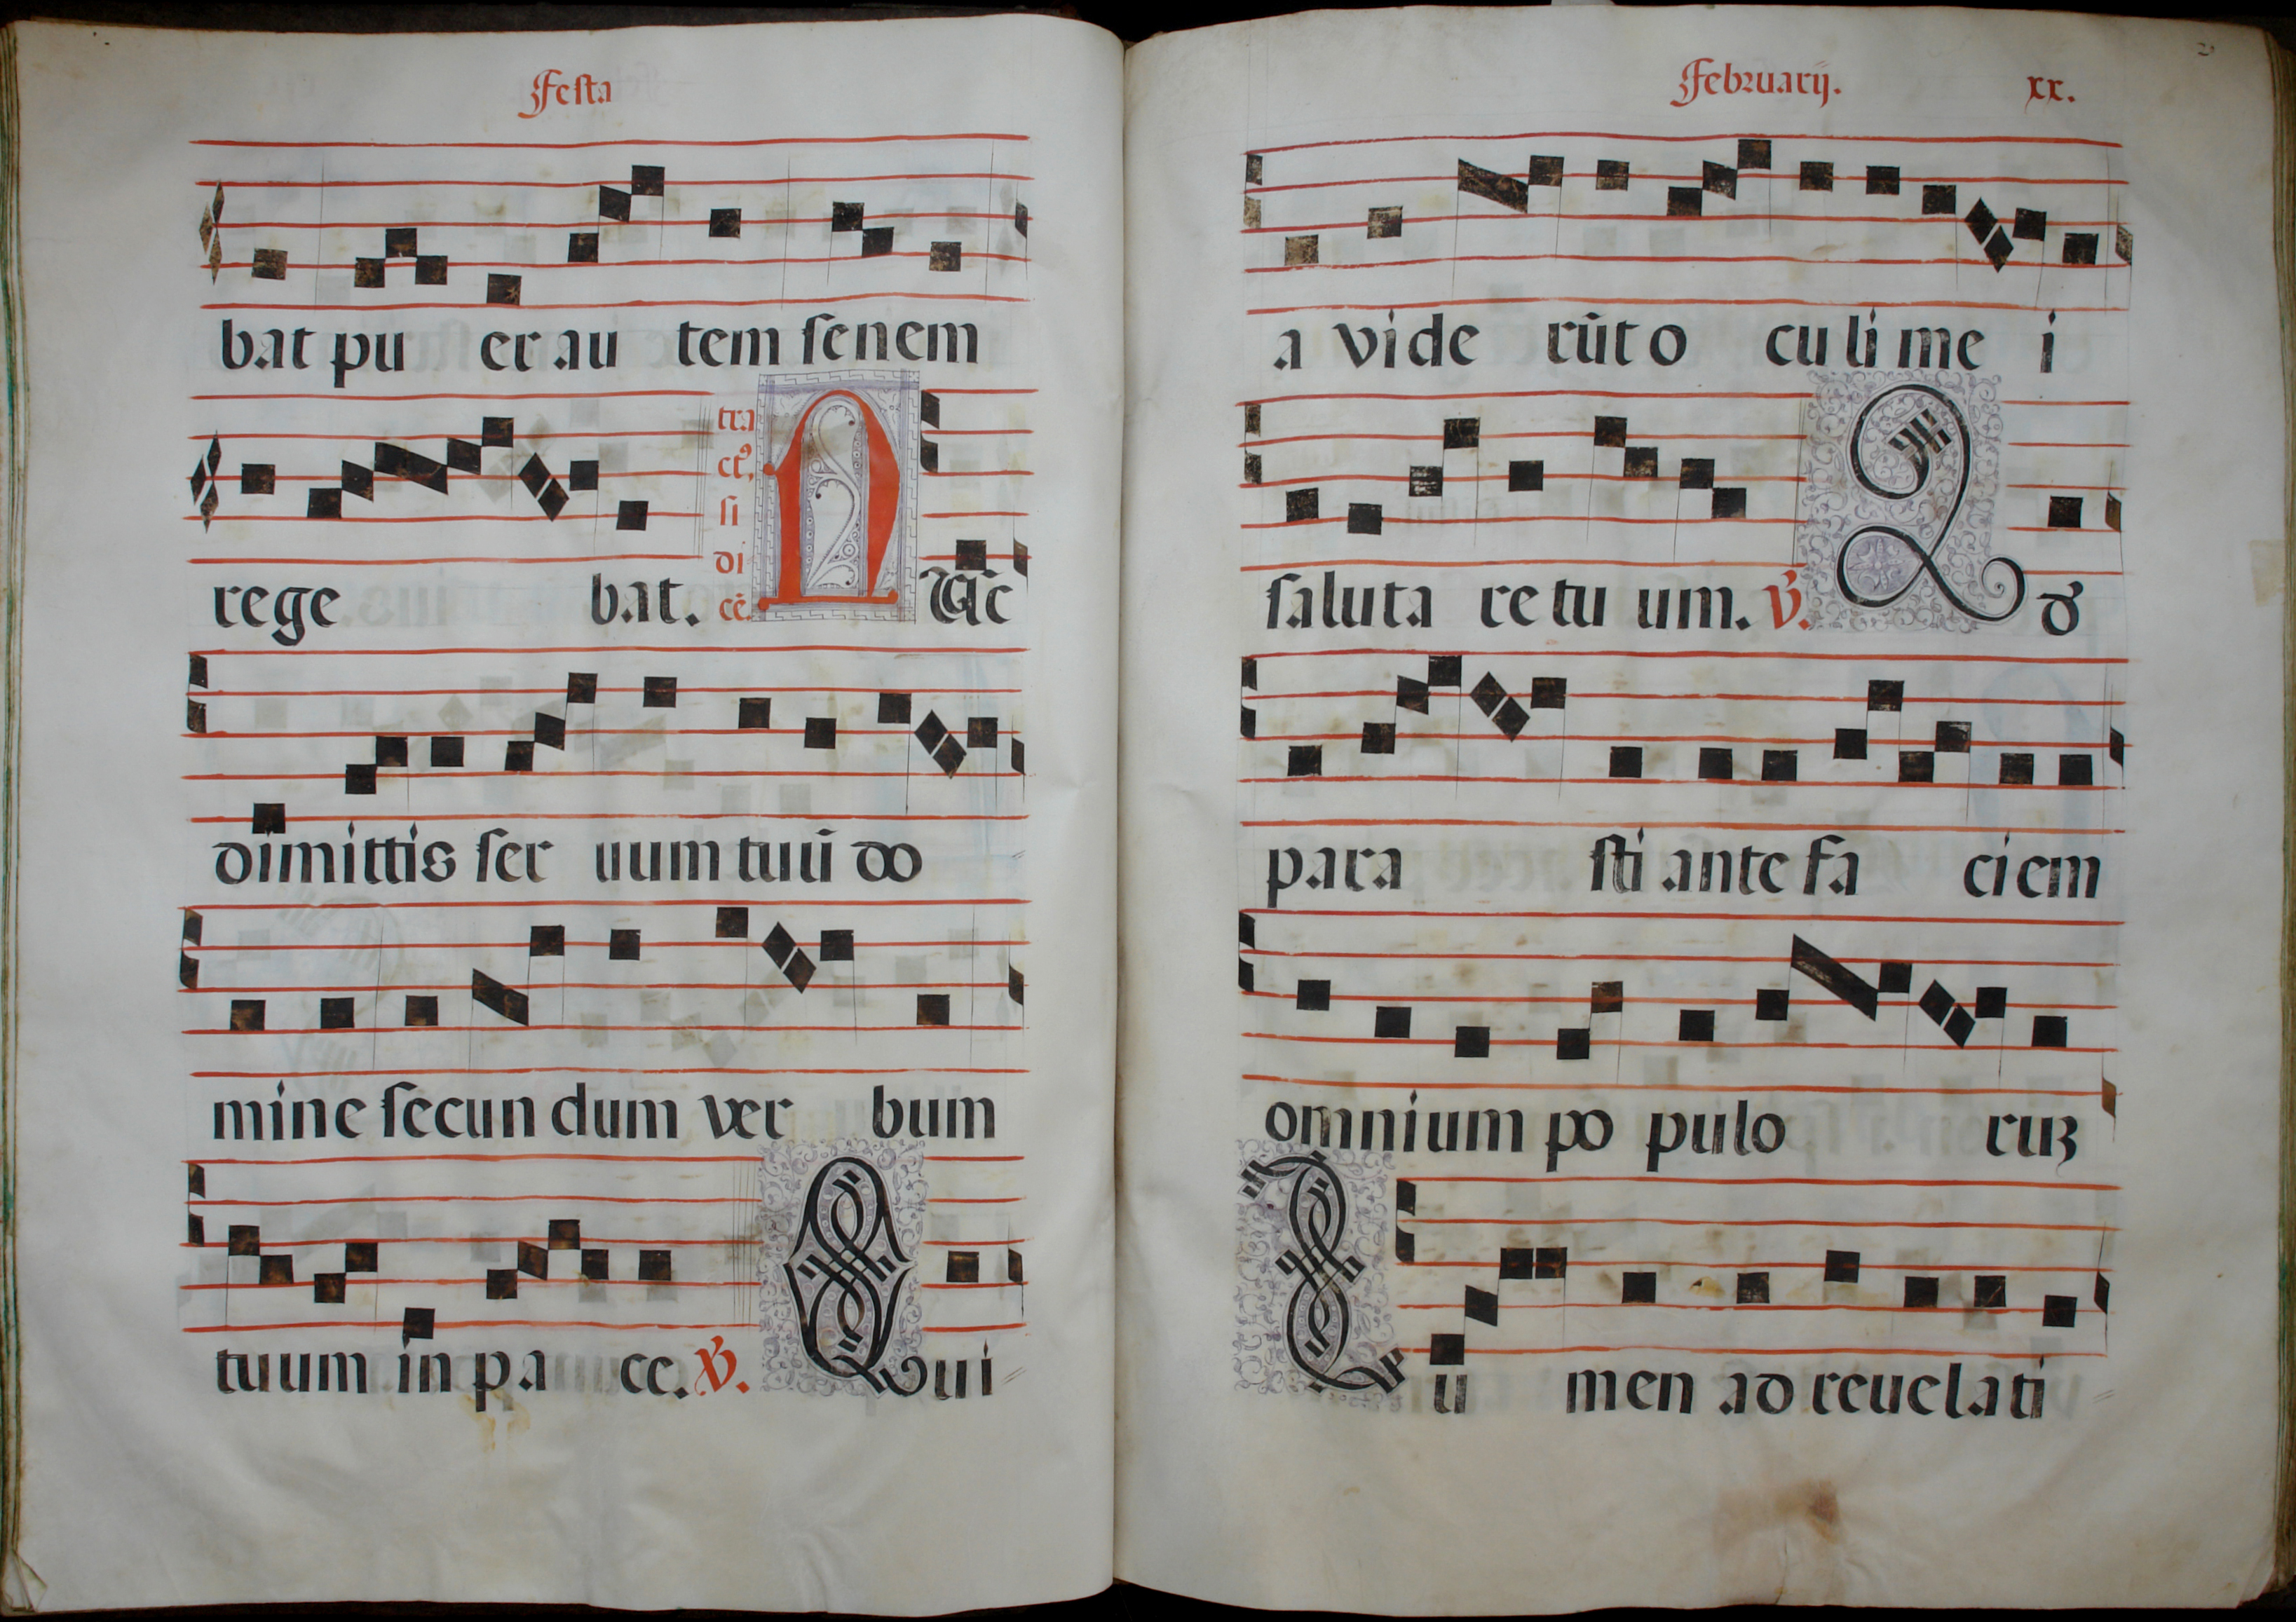 Festa
bat pu er au tem senem
rege bat. tra ctꝰ, si di cē. N Uc
dimittis ser uum tuū do
mine secun dum ver bum
tuum in p a ce. ℣. Q Qui
Februarij. xx.
a vide rūt o cu li me i
saluta re tu um. ℣. Q ď
para sti ante fa ciem
omnium po pulo ruꝫ
L u men ad reuelati